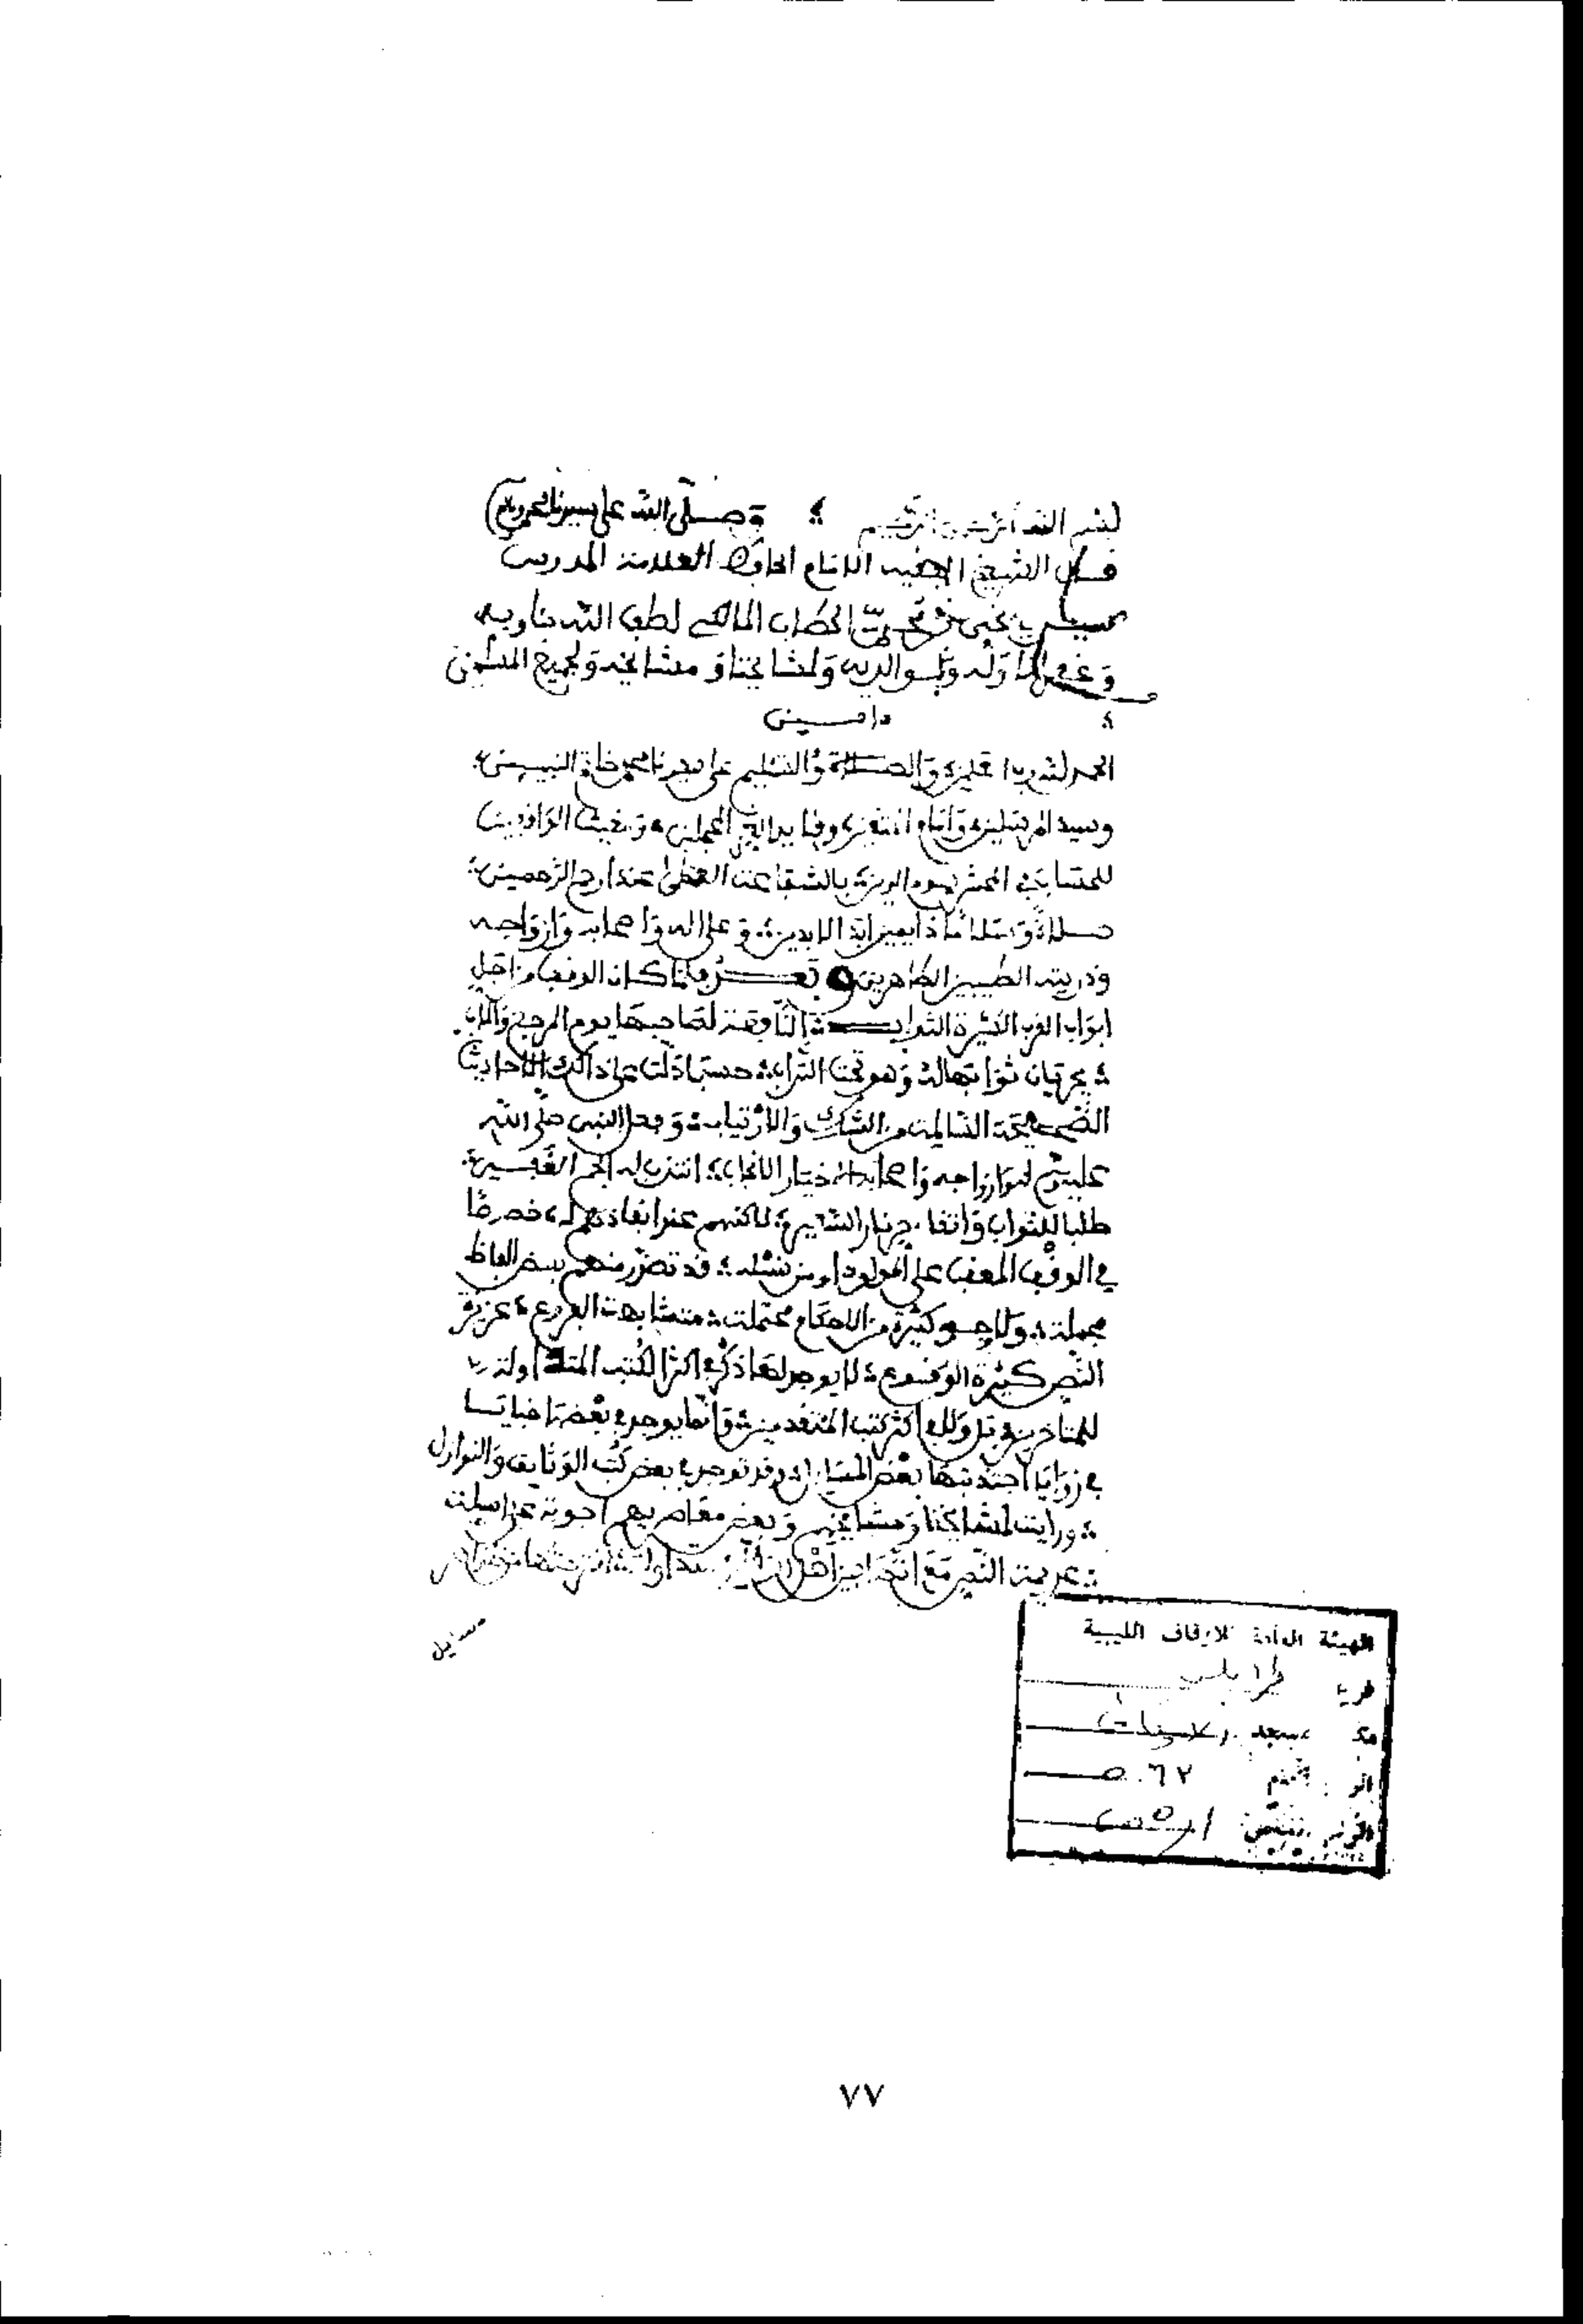 بسم الله الرحمن الرحيم وصلى الله على سيدنا محمد
قال الشيخ الفقيه الامام الحافظ العلامة المدرس
سيدي يحيى بن محمد الحطاب المالكي لطف الله بنا وبه
وغفر لنا وله ولوالديه ولمشايخنا ومشايخه ولجميع المسلمين
ءامين
الحمد لله رب العلمين والصلاة والتسليم على سيدنا محمد خاتم النبيين
وسيد المرسلين وامام المتقين وقايد الغر المحجلين ومغيث الواقفين
للحساب في المحشر يوم الدين بالشفاعة العظمى عند ارحم الرحمين
صلاة وسلاما دايمين ابد الابدين وعلى اله واصحابه وازواجه
وذريته الطيبين الطاهرين وبعد فلما كان الوقف من اجل
ابواب القرب الكثيرة الثواب النافعة لصاحبها يوم المرجع والماب
يجريان ثوابها له وهو تحت التراب حسبما دلت على ذالك الاحاديث
الصحيحة السالمة من الشك والارتياب وفعل النبي صلى الله
عليه وسلم وازواجه واصحابه الاخيار الانجاب انتدب له الجم الغفير
طلبا للثواب واتقا حر نار السعير لاكنهم عند انفاذهم له خصوصا
في الوقف المعقب على المولود ومن نسله قد تصدر منهم بعض الفاظ
مجملة ولوجوه كثيرة من الاحكام محتملة متشابهة الفروع عزيزة
النص كثيرة الوقوع لا يوجد لها ذكر في اكثر الكتب المتداولة
للمتاخرين بل ولا في اكثر كتب المتقدمين وانما يوجد في بعضها خبايا
في زوايا اجتذبتها بعض المسايل وقد توجد في بعض كتب الوثايق والنوازل
ورايت لمشايخنا ومشايخهم وبعض معاصريهم اجوبة عن اسيلة
عديمة النص مع انها بين اهل
مسايل
الهيئة العامة للاوقاف الليبية
طرابلس
مسجد
الرقم
٧٧